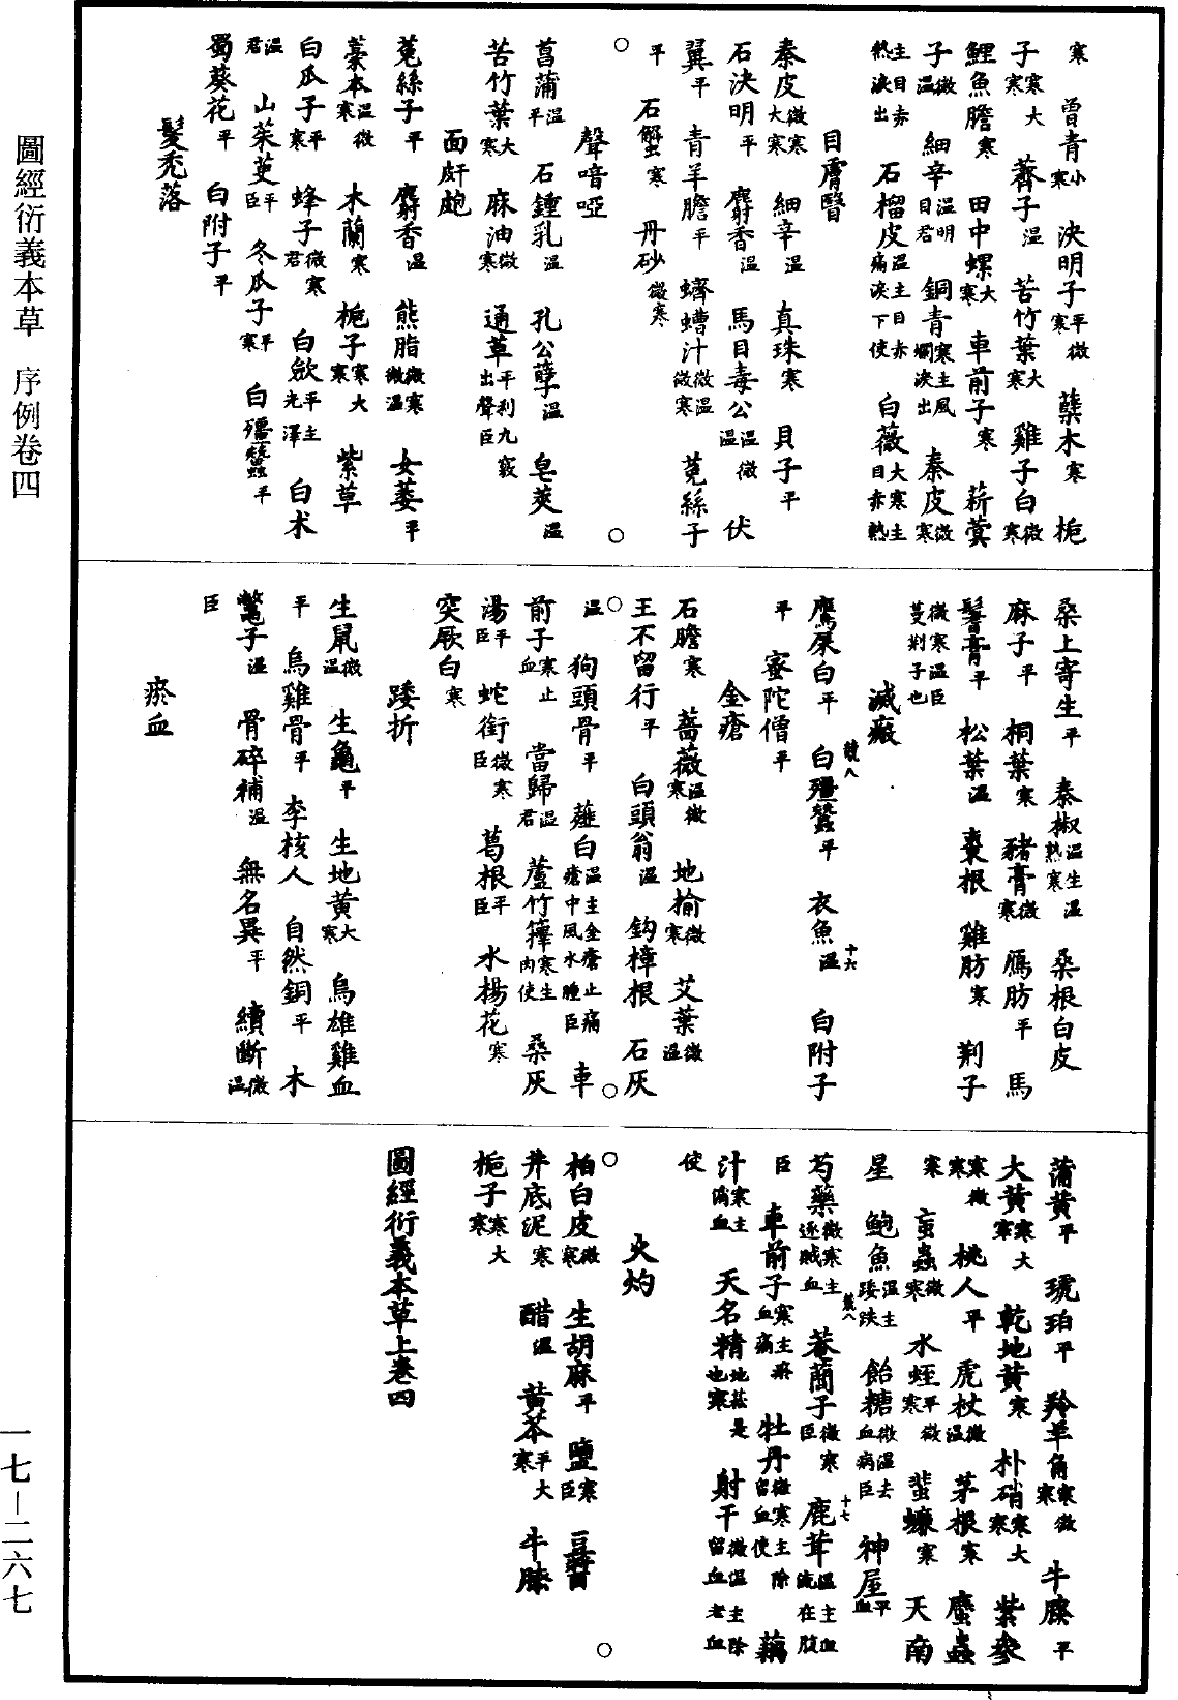 圖經衍義本草　序例卷四
寒　曾青小寒　決明子平微寒　蘗木寒　梔
子寒大寒　薺子温　苦竹葉大寒　雞子白微寒
鯉魚膽寒　田中螺大寒　車前子寒　菥蓂
子微温　細辛温明目君　銅青寒主風爛淚出　秦皮微寒
主目赤熱淚出　石榴皮温主目赤痛淚下使　白薇大寒主目赤熱
目膚瞖
秦皮微寒大寒　細辛温　真珠寒　貝子平
石決明平　麝香温　馬目毒公温微温　伏
翼平　青羊膽平　蠐螬汁微温微寒　菟絲子
平　石蟹寒　丹砂微寒
聲喑啞
菖蒲温平　石鍾乳温　孔公孽温　皂莢温
苦竹葉大寒　麻油微寒　通草平利九竅出聲臣
面皯皰
菟絲子平　麝香温　熊脂微寒微温　女萎平
藁本温微寒　木蘭寒　梔子寒大寒　紫草
白瓜子平寒　蜂子微寒君　白斂平主光澤　白术
温君　山茱萸平臣　冬瓜子平寒　白殭蠶平
蜀葵花平　白附子平
髮禿落
桑上寄生平　秦椒温生温熟寒　桑根白皮
麻子平　桐葉寒　豬膏微寒　鴈肪平　馬
鬐膏平　松葉温　棗根　雞肪寒　荆子
微寒温臣蔓荆子也
滅瘢
鷹屎白平　白殭蠶平　衣魚温　白附子
平　蜜陀僧平
競八
十六
金瘡
石膽寒　薔薇温微寒　地榆微寒　艾葉微温
王不留行平　白頭翁温　釣樟根　石灰
温　狗頭骨平　薤白温主金瘡止痛瘡中風水腫臣　車
前子寒止血　當歸温君　蘆竹籜寒生肉使　桑灰
湯平臣　蛇銜微寒臣　葛根平臣　水楊花寒
突厥白寒
踒折
生鼠微温　生龜平　生地黃大寒　烏雄雞血
平　烏雞骨平　李核人　自然銅平　木
鼈子温　骨碎補温　無名異平　續斷微温
臣
瘀血
蒲黃平　琥珀平　羚羊角寒微寒　牛膝平
大黃寒大寒　乾地黃寒　朴硝寒大寒　紫參
寒微寒　桃人平　虎杖微温　茅根寒　䗪蟲
寒　䖟蟲微寒　水蛭平微寒　蜚蠊寒　天南
星　鮑魚温主踒跌　飴糖微温去血病臣　神屋平血
芍藥微寒主逐賊血　菴䕡子微寒臣　鹿茸温主血流在腹
臣　車前子寒主痹血痛　牡丹微寒主除留血使　藕
汁寒主消血　天名精地菘是也寒　射干微温主除留血老血
使
十七
火灼
柏白皮微寒　生胡麻平　鹽寒臣　豆醬
井底泥寒　醋温　黃芩平大寒　牛膝
梔子寒大寒
圖經衍義本草上卷四
一七—二六七